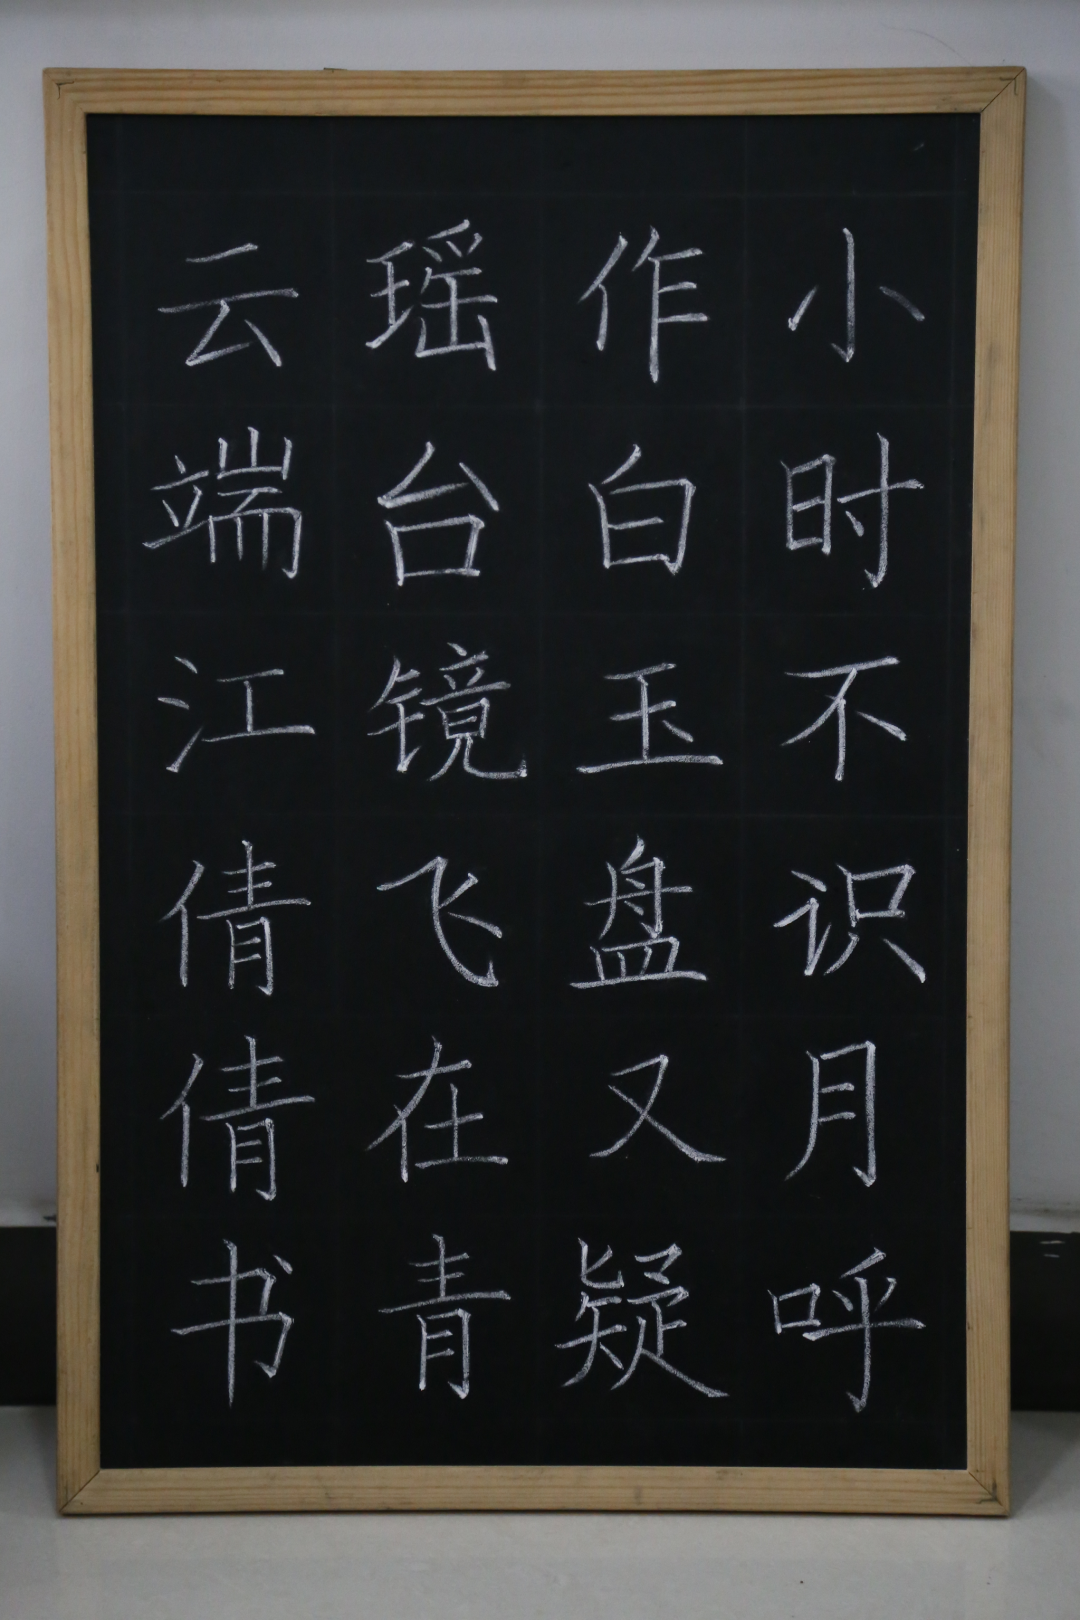 小时不识月呼
作白玉盘又疑
瑶台镜飞在青
云端江倩倩书